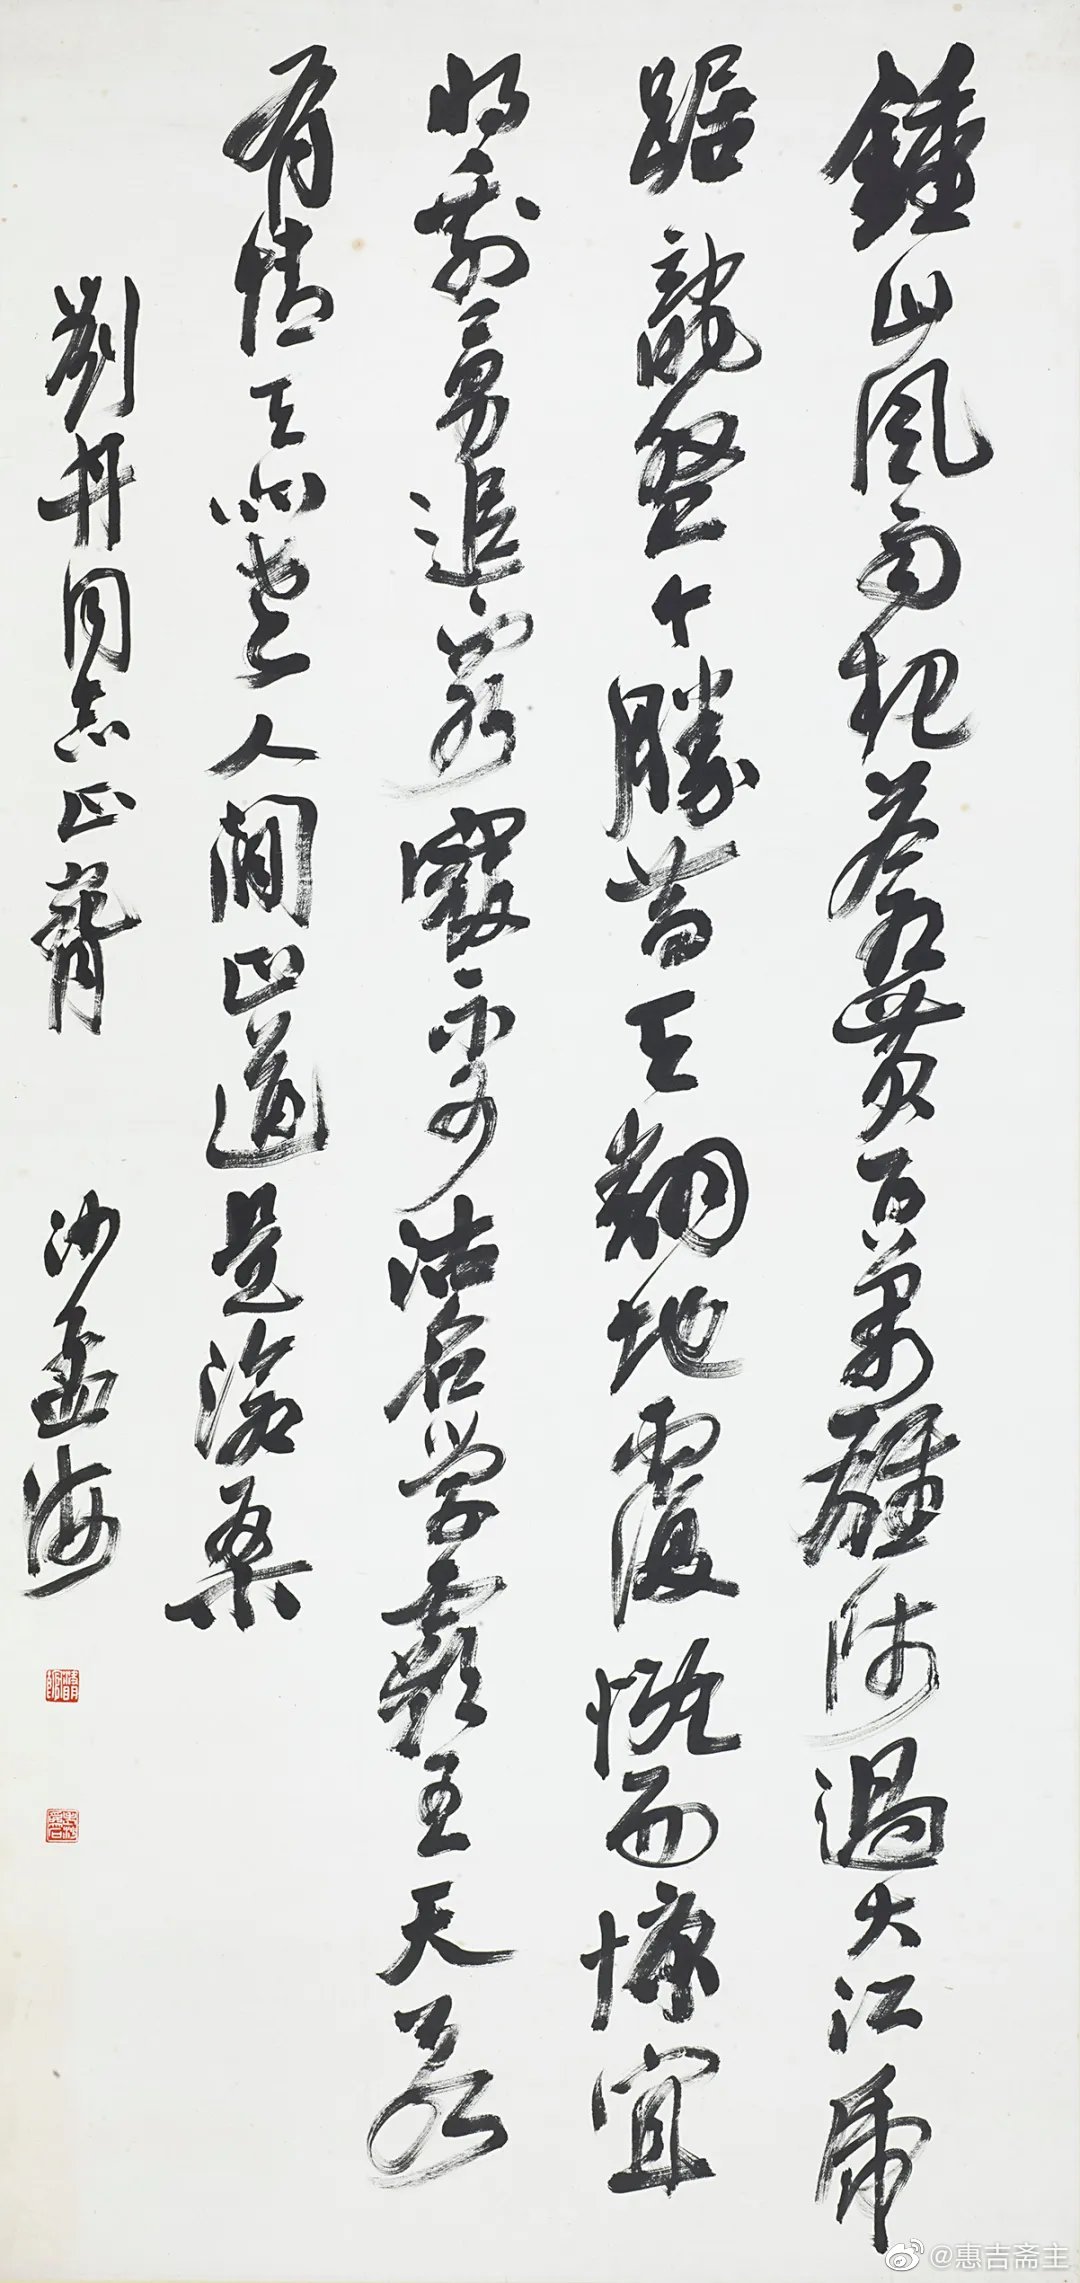 鍾山風雨起蒼黃百萬雄師過大江虎
踞龍盤今勝昔天翻地覆慨而慷宜
將剩勇追窮寇不可沽名学霸王天若
有情天亦老人間正道是滄桑
劉丹同志正 沙孟海
@惠吉斋主